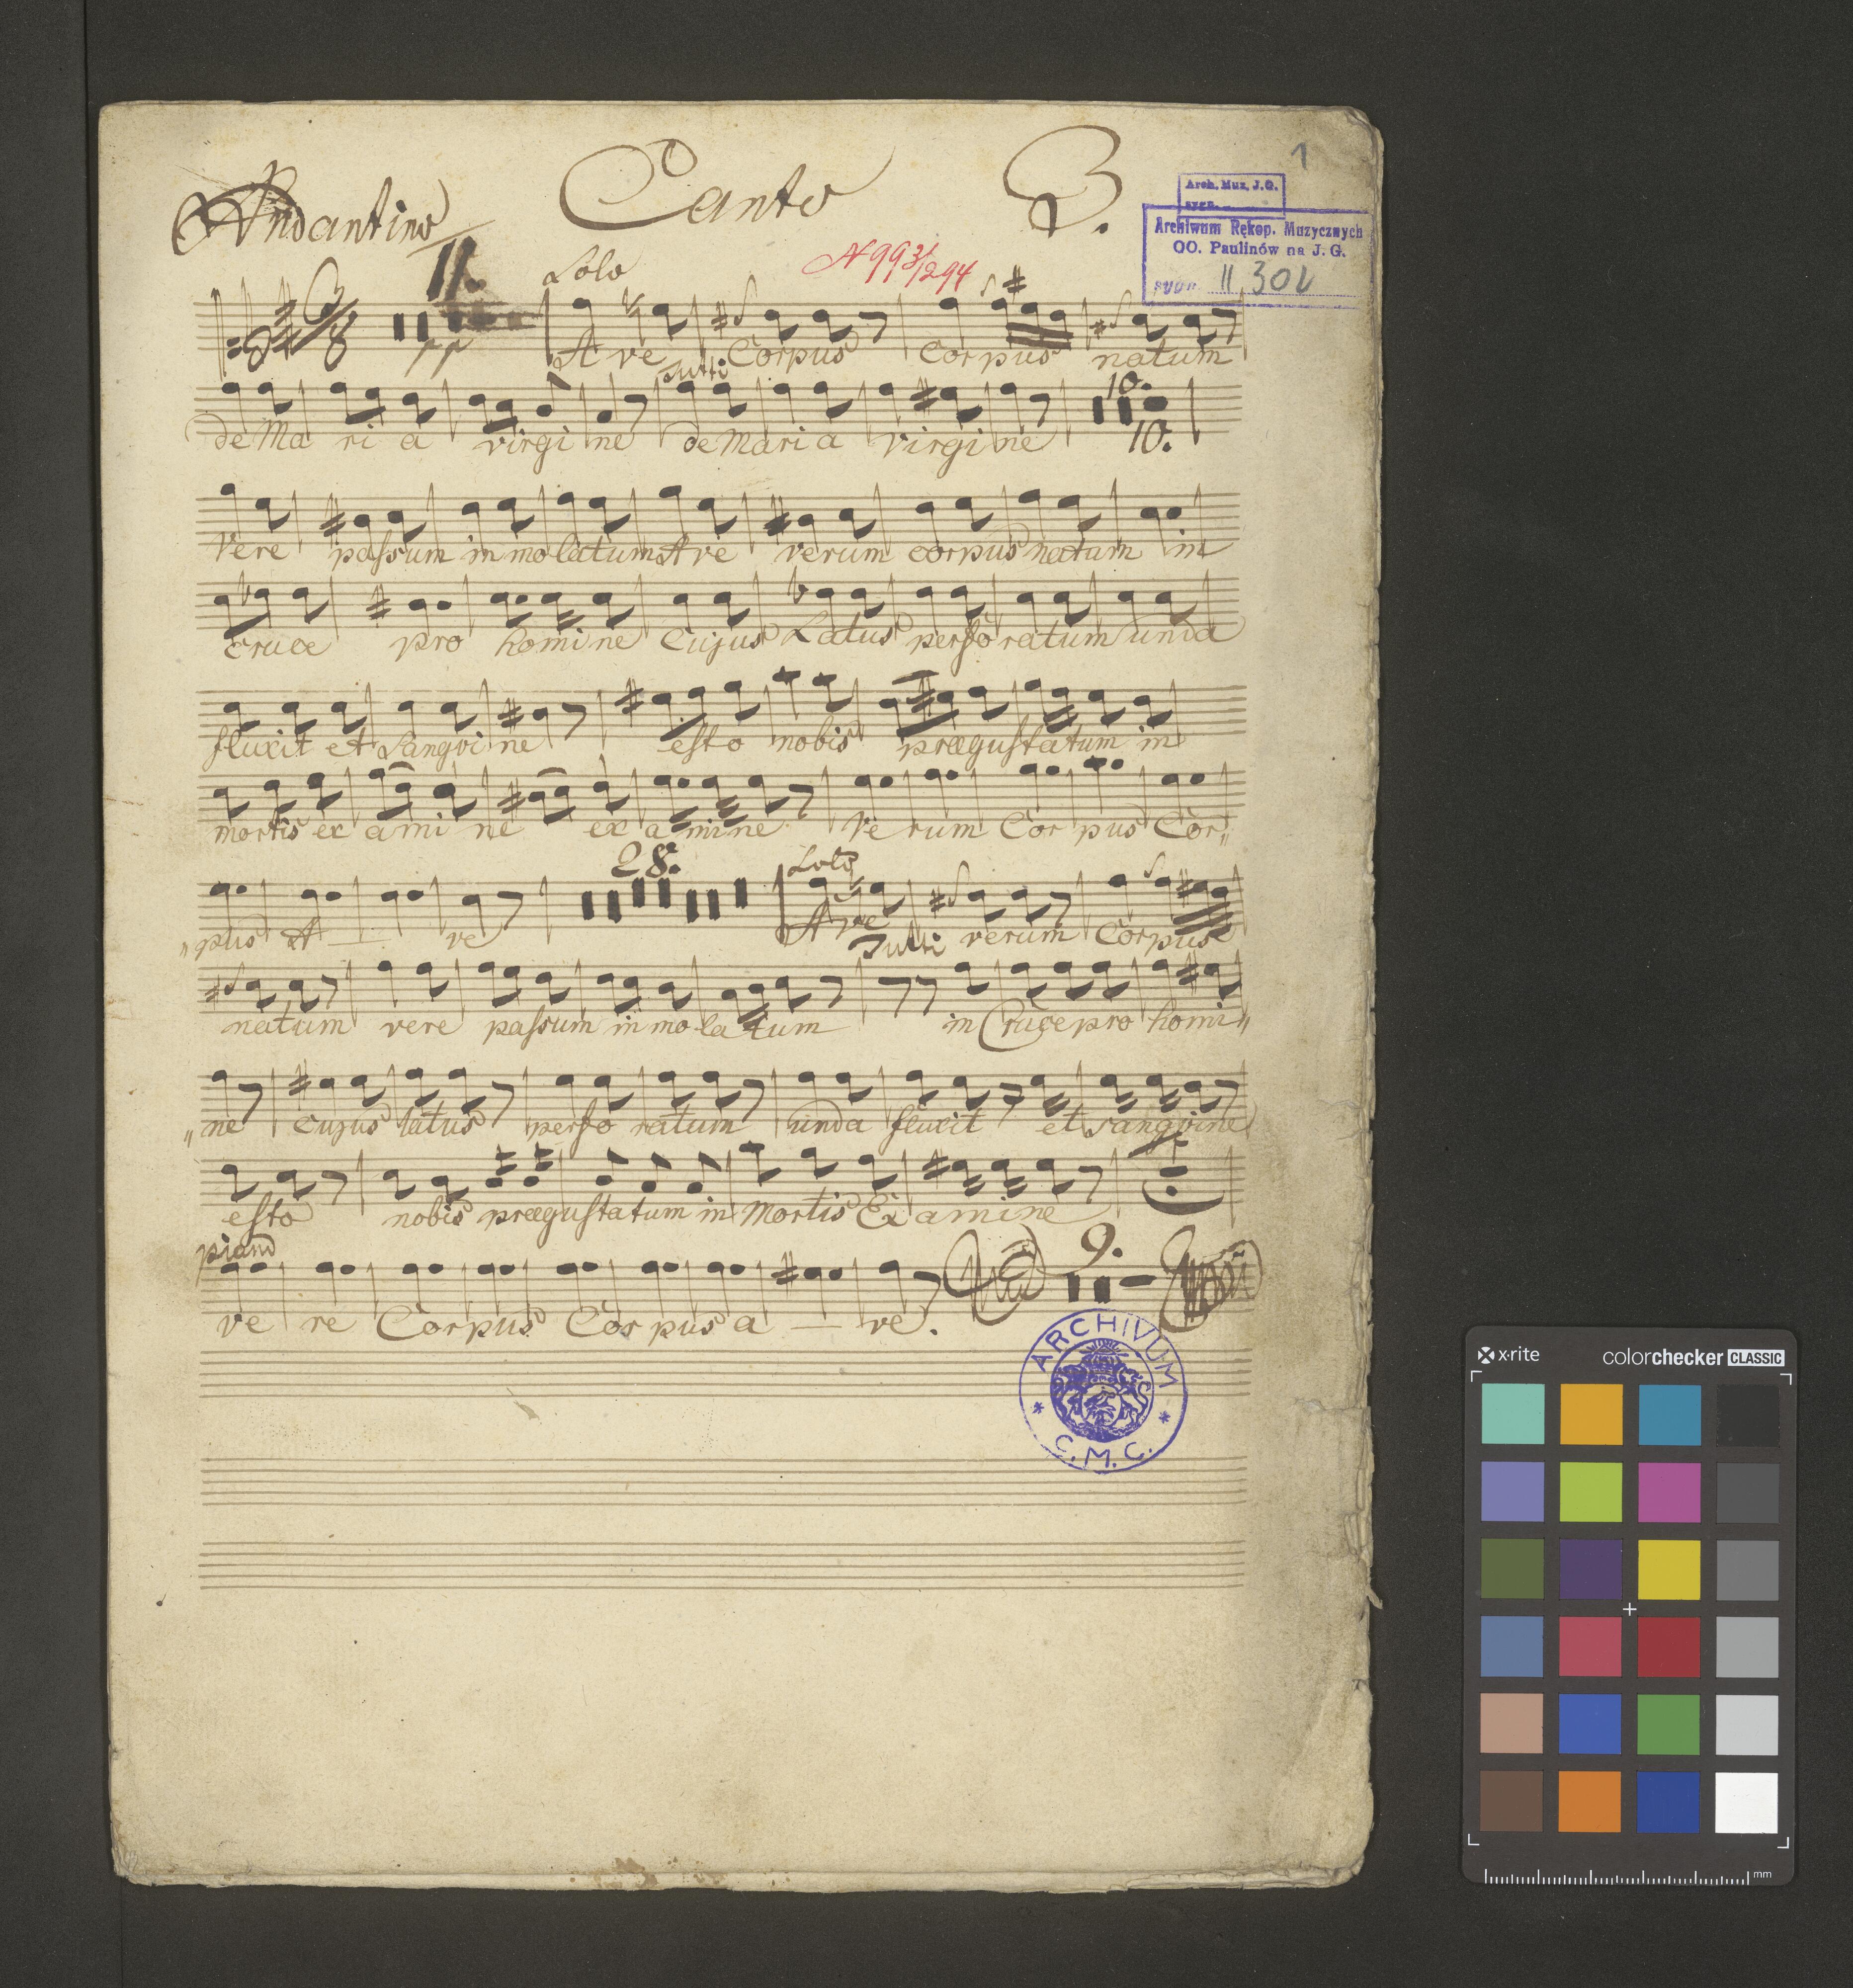 1
Canto B.
Andantino
Arch. Muz. J.G.
sygn.
Archiwum Rękop. Muzycznych
OO. Paulinów na J. G.
sygn. II, 302
N 993/1294
11. Solo
3/8 A ve Corpus Corpus natum
Tutti
de Ma ri a virgi ne de Maria virgi ne 10.
10.
Vere passum in mo latum Ave verum corpus natum in
cruce pro homi ne Cujus Latus perfo ratum unda
fluxit et Sangvi ne esto nobis prægustatum in
mortis ex ami ne ex a mine Ve rum Cor pus Cor„
28. Solo
„pus A — ve Ave verum Corpus
Tutti
natum vere passum in mo la tum in Cruce pro homi„
„ne cujus latus perfo ratum unda fluxit et sangvine
esto nobis prægustatum in Mortis Ex a mi ne
piano 9.
ve re Corpus Corpus a — ve.
ARCHIVUM
* C.M.C. *
x·rite colorchecker CLASSIC
mm